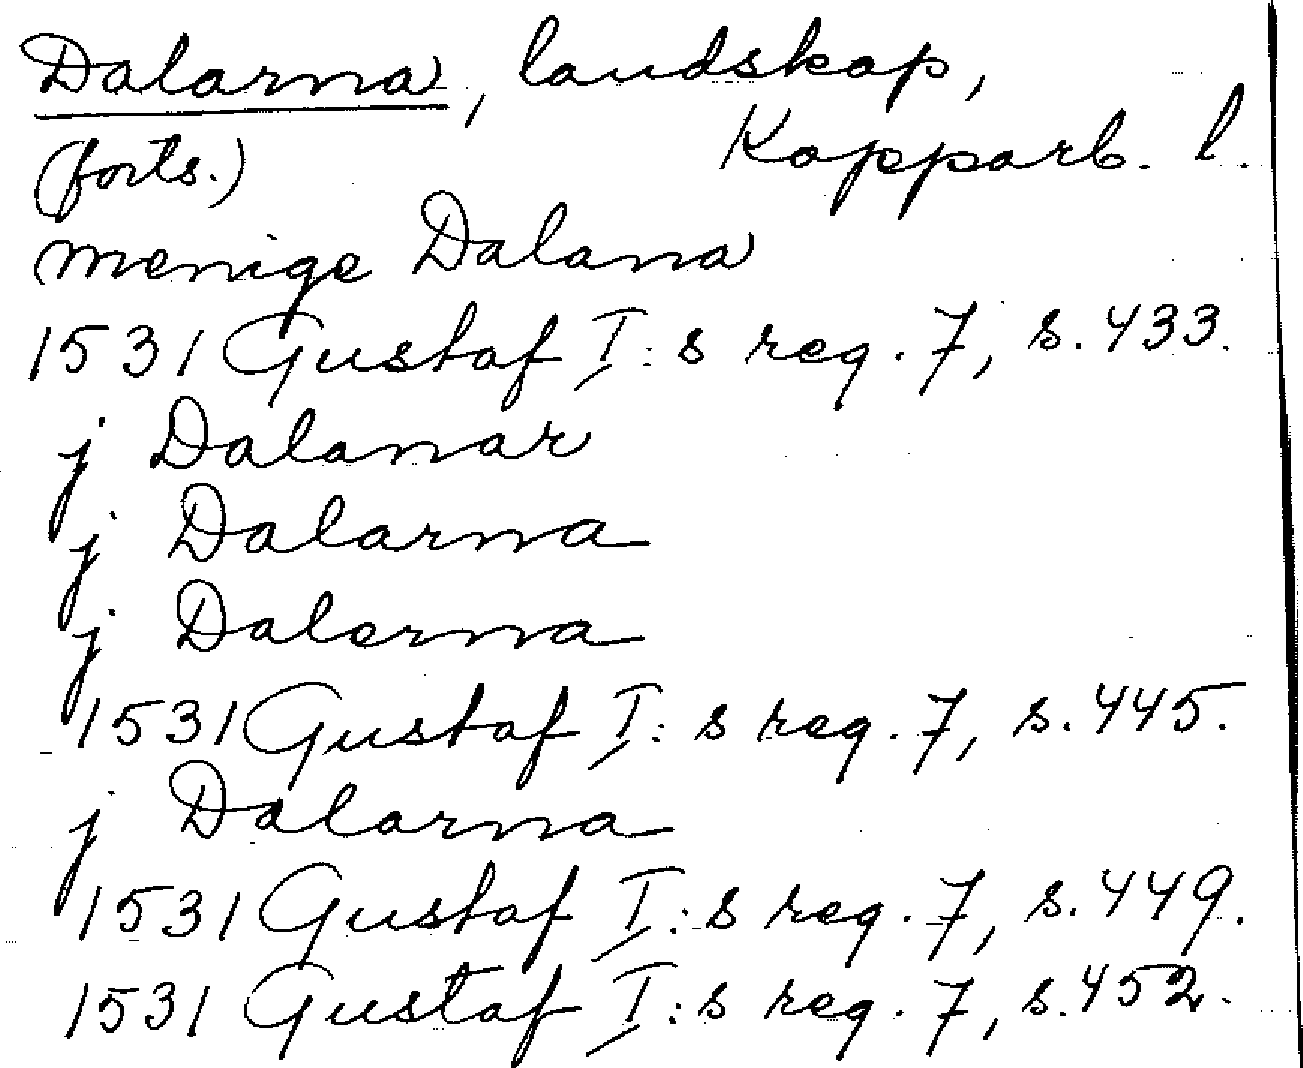 Dalarna, landskap,
(forts.) Kopparb. l.
menige Dalana
1531 Gustaf I:s reg. 7, s. 433.
j Dalanar
j Dalarna
j Dalerna
1531 Gustaf I:s reg. 7, s. 445.
j Dalarna
1531 Gustaf I:s reg. 7, s. 449.
1531 Gustaf I:s reg. 7, s. 452.